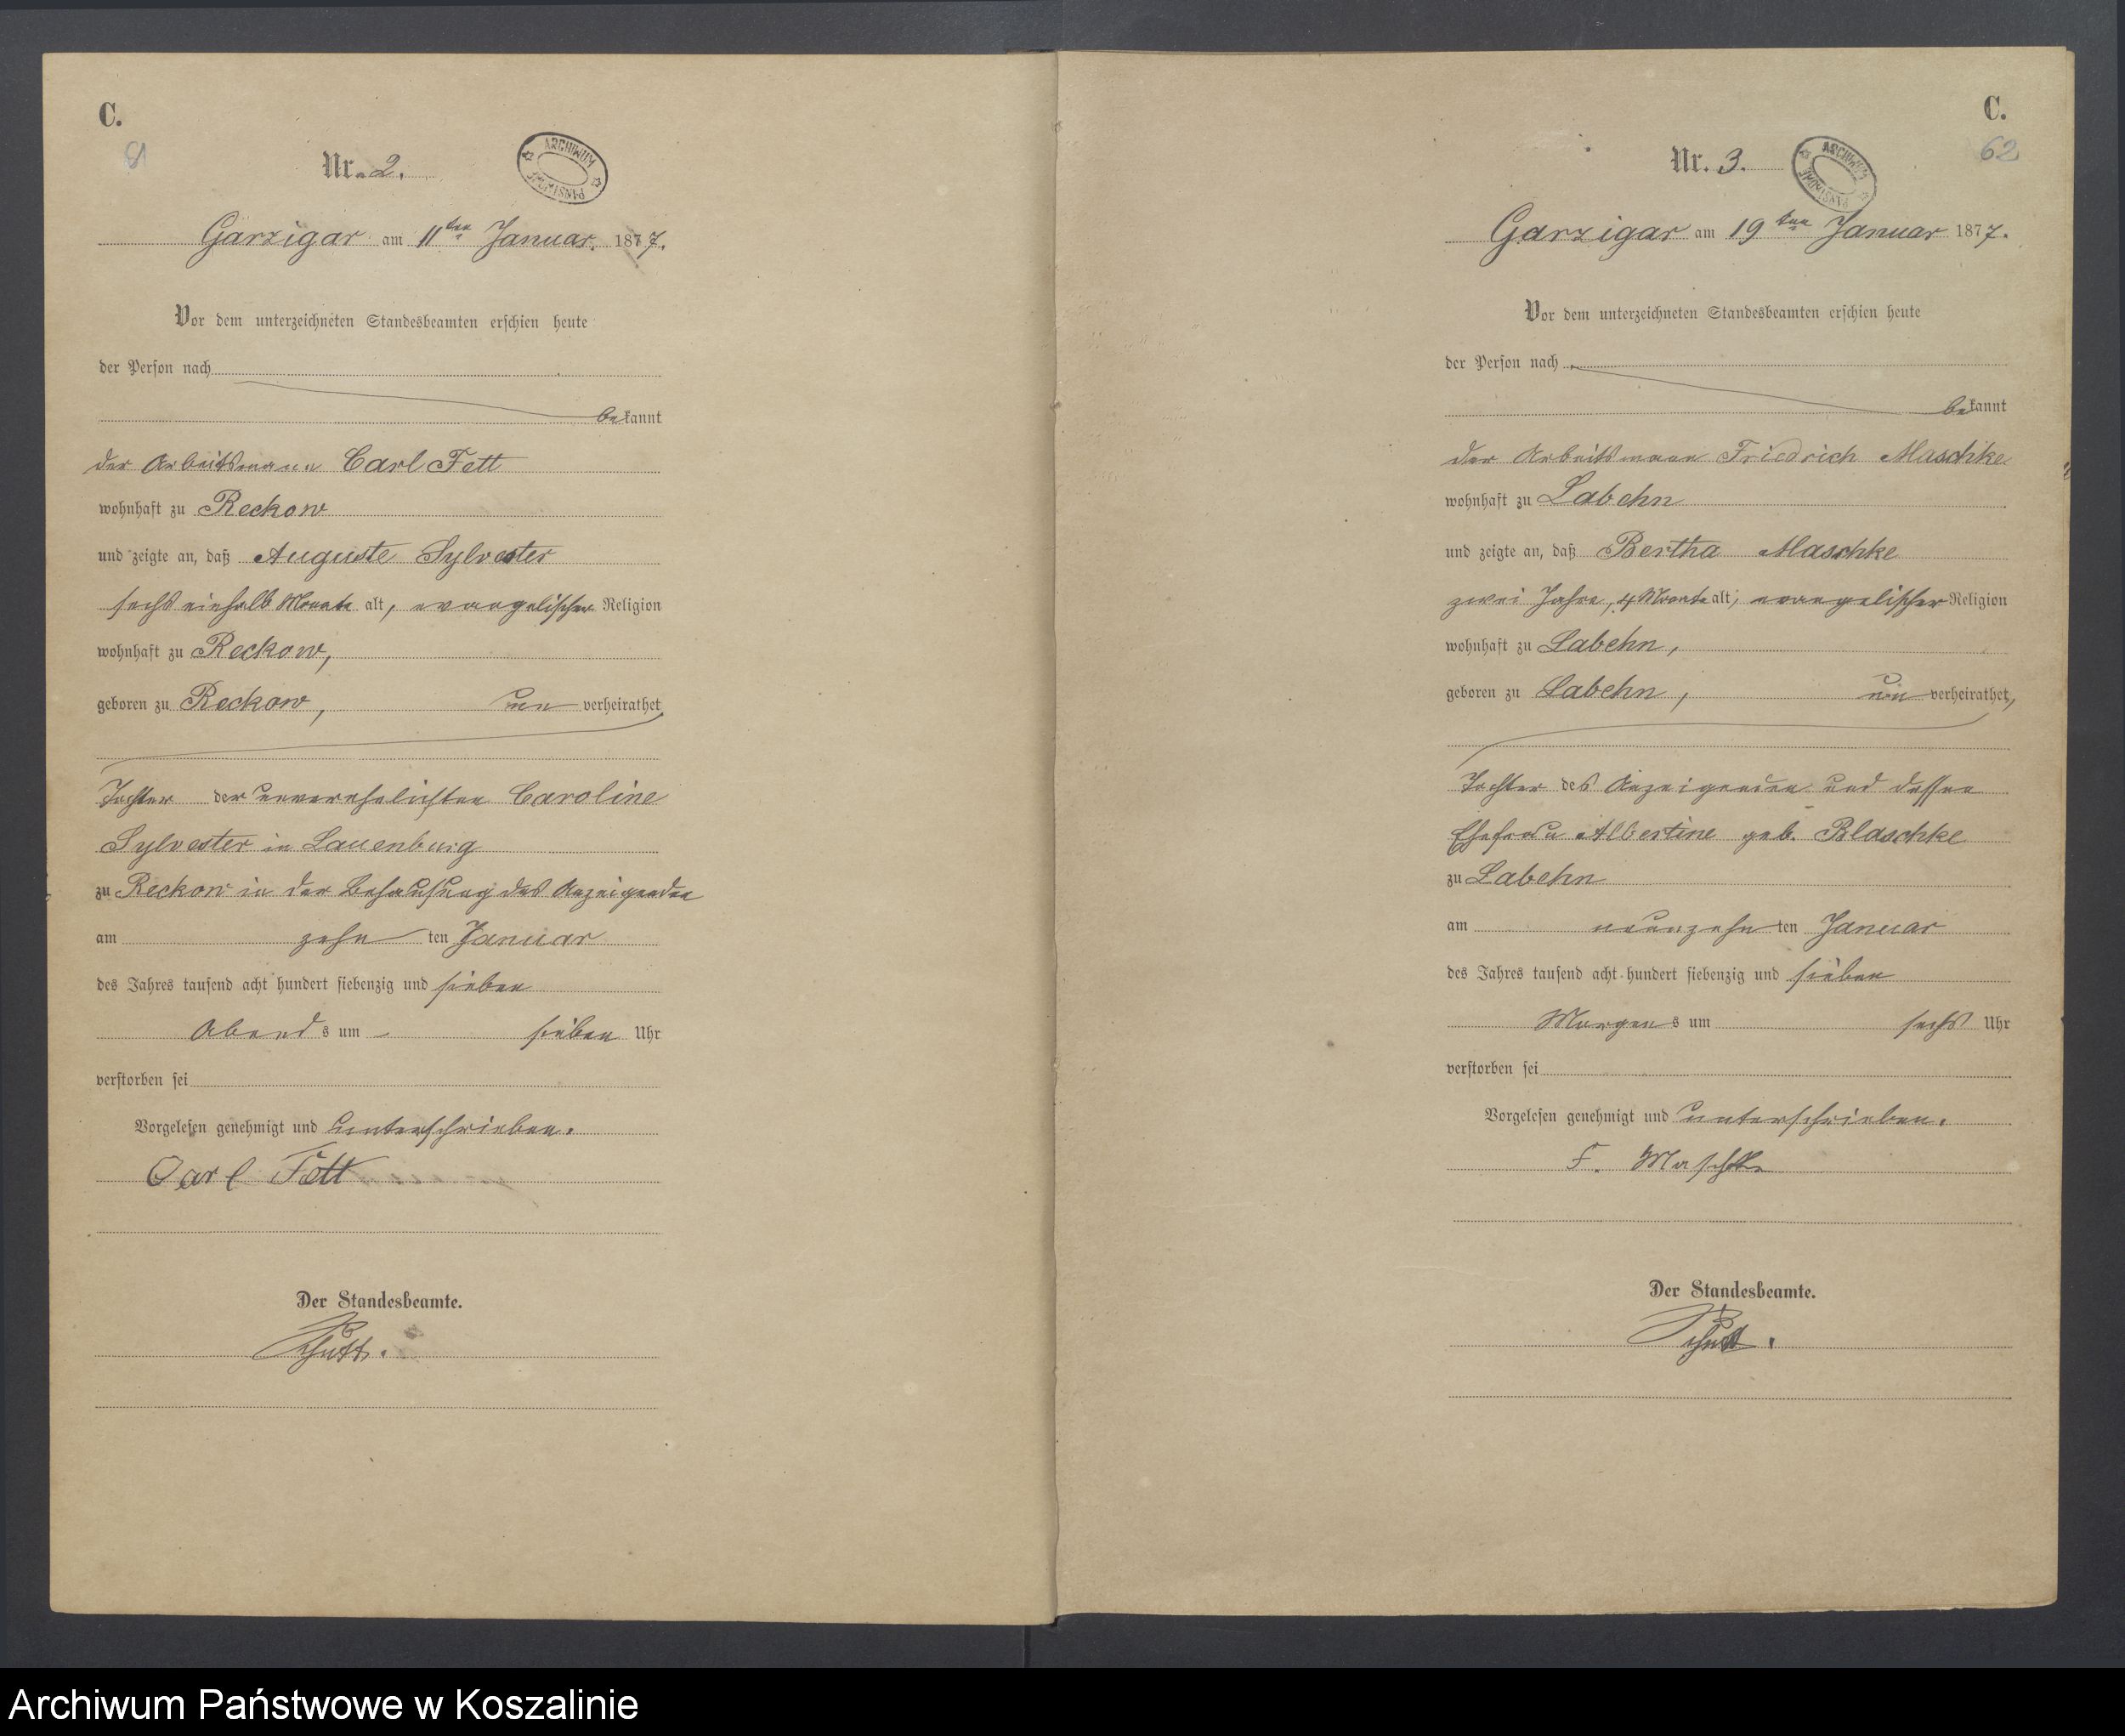 C.
Nr. 2.
ARCHIWUM PAŃSTWOWE
Garzigar am 11ten Januar 1877.
Vor dem unterzeichneten Standesbeamten erschien heute
der Person nach
bekannt
der Arbeitsmann Carl Fett
wohnhaft zu Reckow
und zeigte an, daß Auguste Sylvester
sechs einhalb Monate alt, evangelischer Religion
wohnhaft zu Reckow,
geboren zu Reckow, un verheirathet
Tochter der unverehelichten Caroline
Sylvester in Lauenburg
zu Reckow in der Behausung des Anzeigenden
am zehn ten Januar
des Jahres tausend acht hundert siebenzig und sieben
Abend s um sieben Uhr
verstorben sei
Vorgelesen genehmigt und unterschrieben.
Carl Fett
Der Standesbeamte.
C.
62
Nr. 3.
ARCHIWUM PAŃSTWOWE
Garzigar am 19ten Januar 1877.
Vor dem unterzeichneten Standesbeamten erschien heute
der Person nach
bekannt
der Arbeitsmann Friedrich Maschke
wohnhaft zu Labehn
und zeigte an, daß Bertha Maschke
zwei Jahre, 4 Monate alt, evangelischer Religion
wohnhaft zu Labehn,
geboren zu Labehn, un verheirathet,
Tochter des Anzeigenden und dessen
Ehefrau Albertine geb. Blaschke
zu Labehn
am neunzehn ten Januar
des Jahres tausend acht hundert siebenzig und sieben
Morgen s um sechs Uhr
verstorben sei
Vorgelesen genehmigt und unterschrieben.
F. Maschke
Der Standesbeamte.
Archiwum Państwowe w Koszalinie